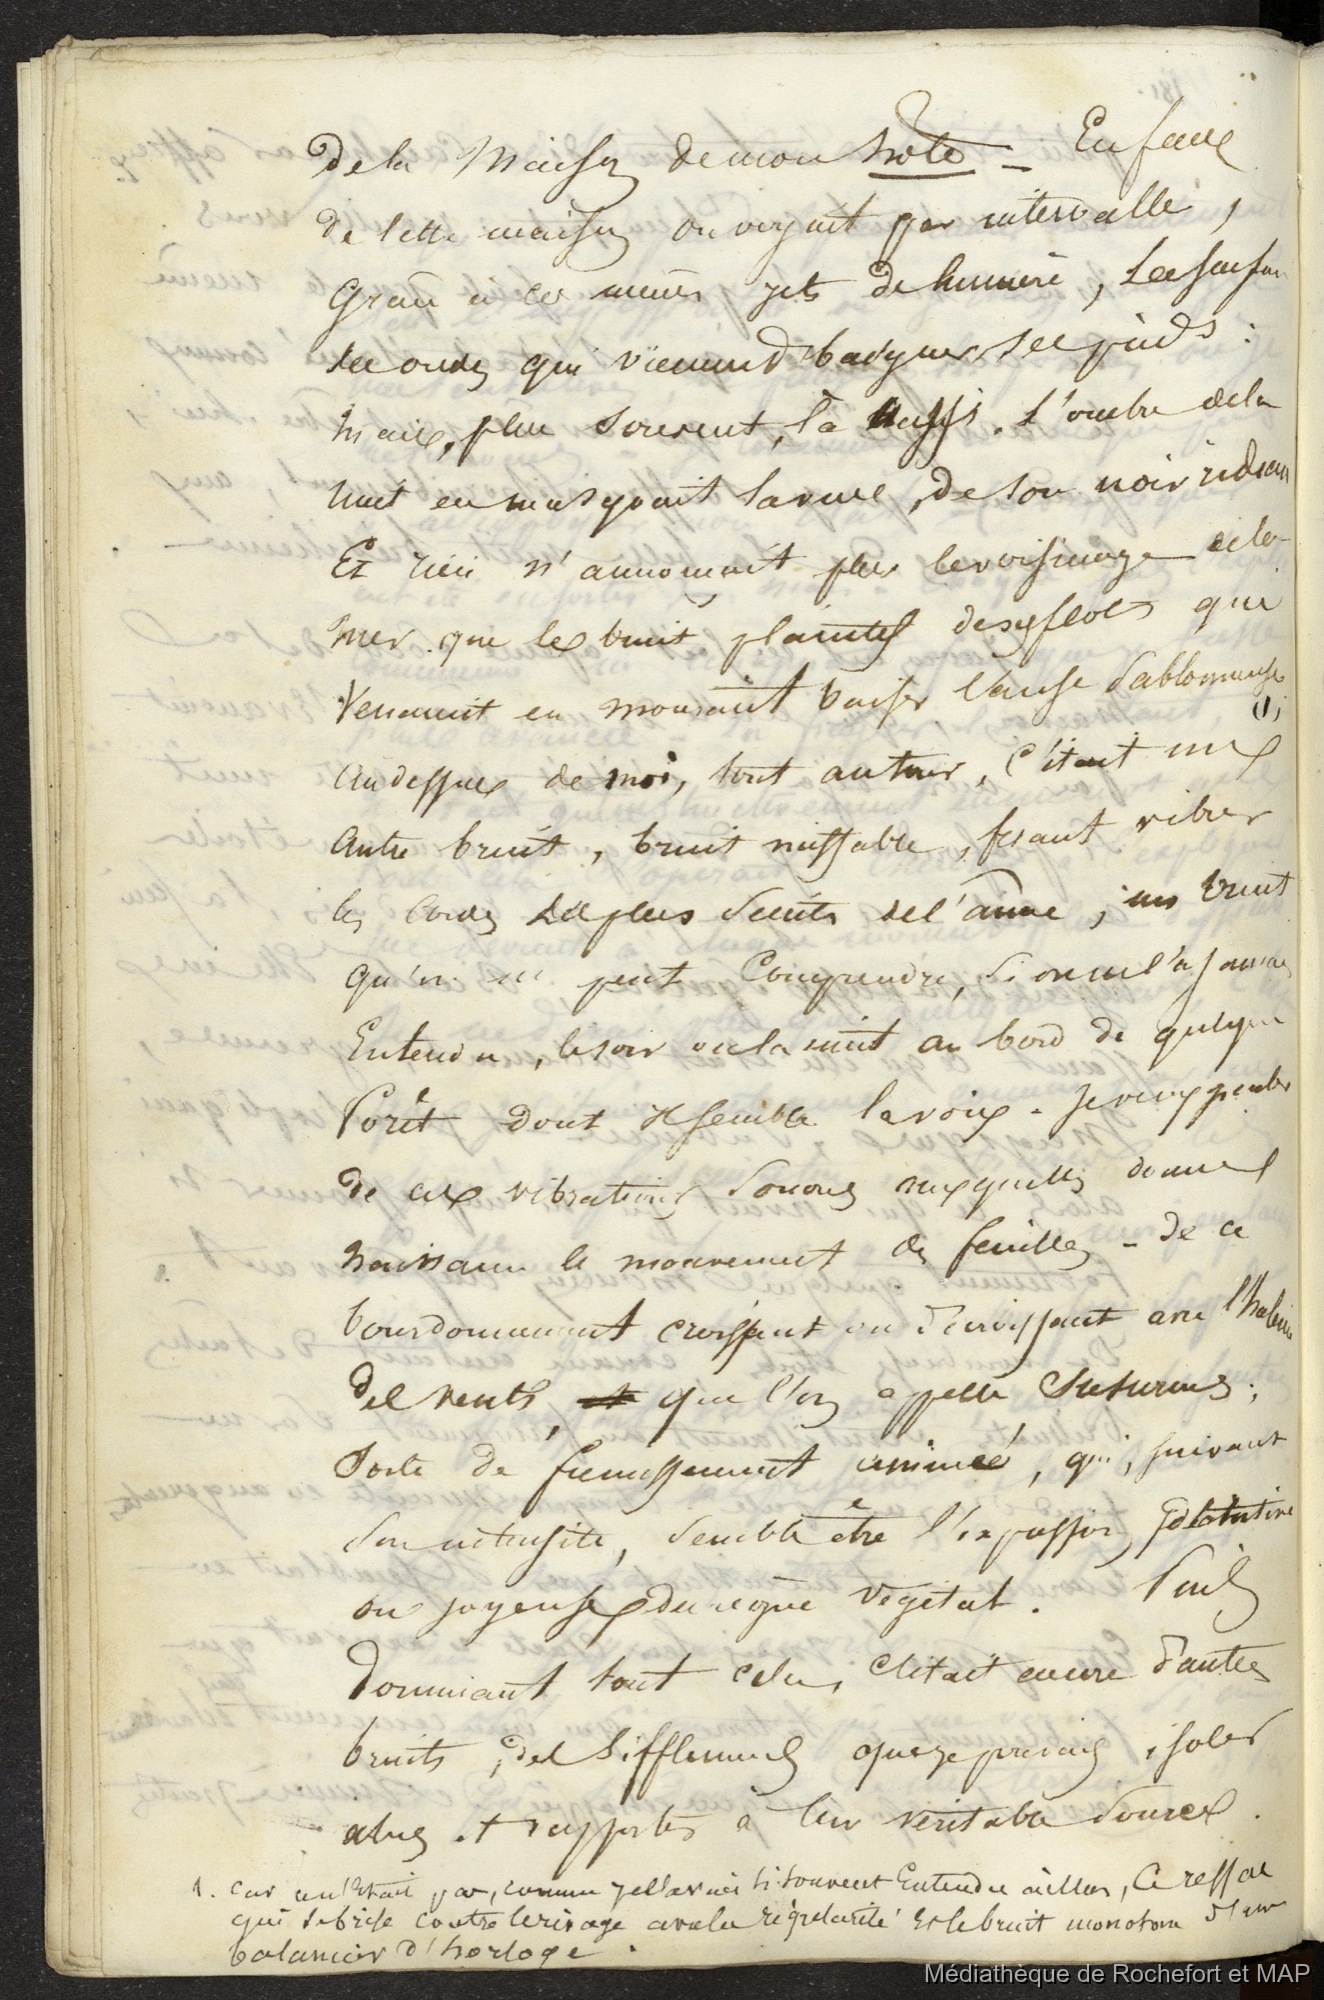 de la Maison de mon hôte = En face
de cette maison on voyait par intervalle,
Grace à ces mêmes jets de lumière,
les ondes qui viennent baigner ses pieds :
Mais, plus souvent, là aussi, l'ombre de la
nuit en masquait la vue, de son noir rideau
Et rien n'annonçait plus le voisinage de la
mer que le bruit plaintif des flots qui
Venaient en mourant baiser l'anse sablonneuse (1)
Au dessus de moi, tout autour, c'était un
Autre bruit, bruit ineffable, fesant vibrer
les cordes les plus secrètes de l'âme, un bruit
qu'on ne peut comprendre, si on ne l'a jamais
Entendu, le soir ou la nuit au bord de quelque
forêt dont il semble la voix - je veux parler
de ces vibrations sonores auxquelles donne
naissance le mouvement des feuilles - de ce
bourdonnement croissant ou décroissant avec l'haleine
des vents, que l'on appelle Susurrus ;
sorte de frémissement animé, qui, suivant
son intensité, semble être l'expression
ou joyeuse du règne végétal. Puis
Dominant tout cela, c'était encore d'autres
bruits, des sifflements que je pouvais isoler
et rapporter à leur véritable source.
1. car ce n'était pas, comme je l'avais si souvent Entendu ailleurs, Ce ressac
qui se brise contre le rivage avec la régularité et le bruit monotone d'un
balancier d'horloge.
Médiathèque de Rochefort et MAP